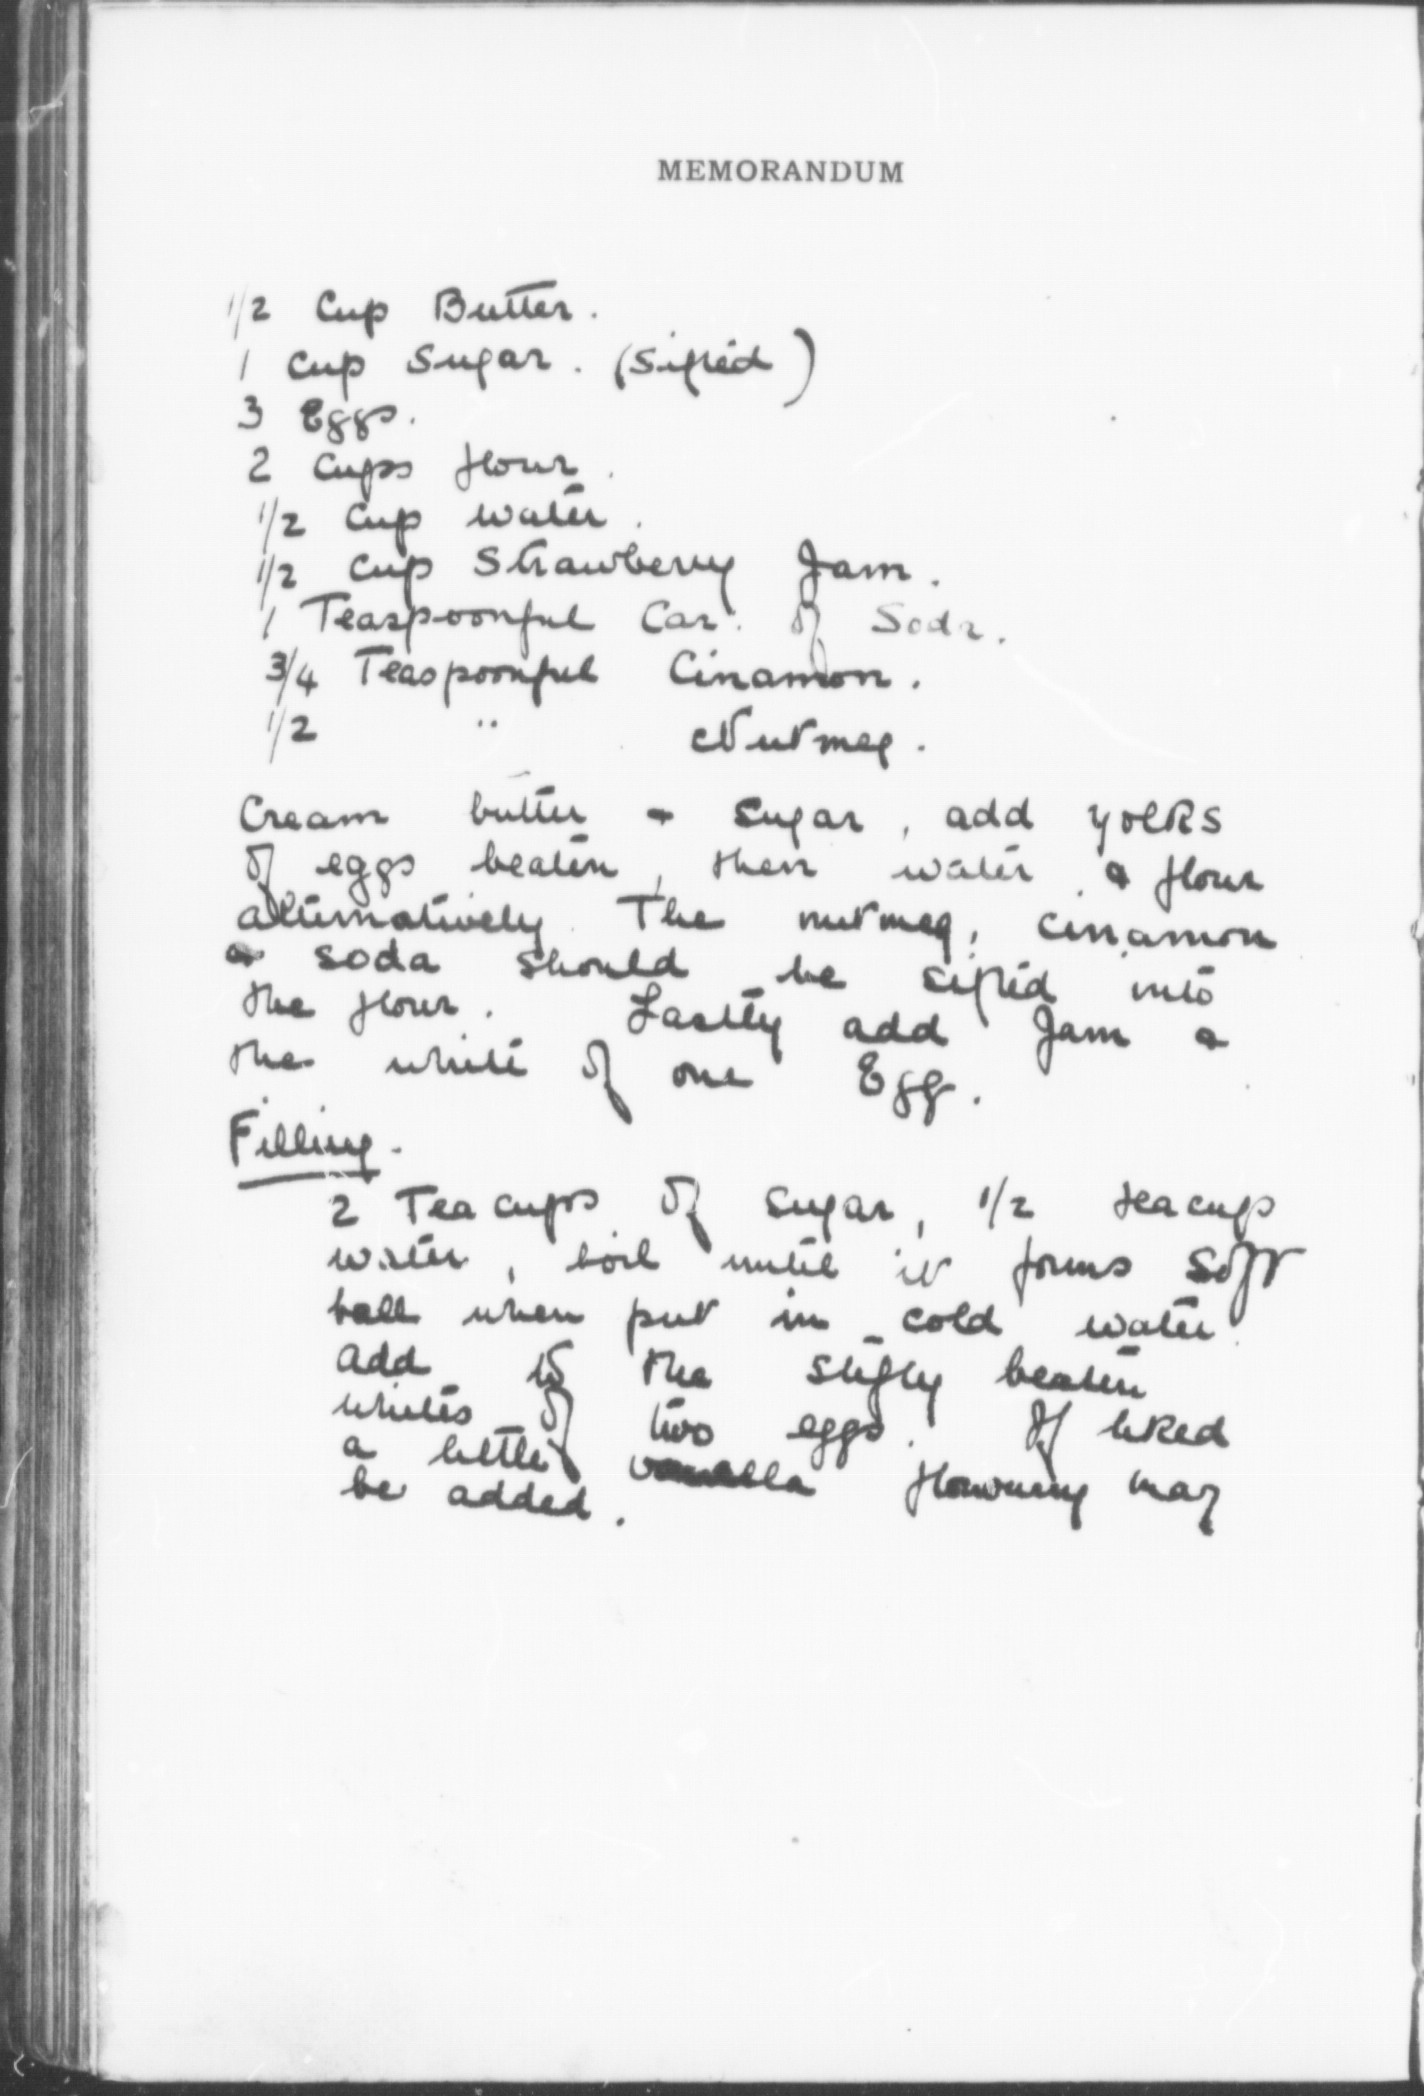 MEMORANDUM
1/2 Cup Butter.
1 Cup Sugar. (Sifted)
3 Eggs.
2 Cups flour.
1/2 Cup water.
1/2 Cup Strawberry Jam.
1 Teaspoonful Car. of Soda.
3/4 Teaspoonful Cinamon.
1/2 " Nutmeg.
Cream butter & Sugar, add yolks
of eggs beaten, then water & flour
alternatively. The nutmeg, cinamon
& soda should be sifted into
the flour. Lastly add Jam &
the white of one Egg.
Filling.
2 Tea cups of Sugar, 1/2 teacup
water, boil until it forms Soft
ball when put in cold water.
add to the stifly beaten
whites of two eggs. If liked
a little vanilla flowuring may
be added.